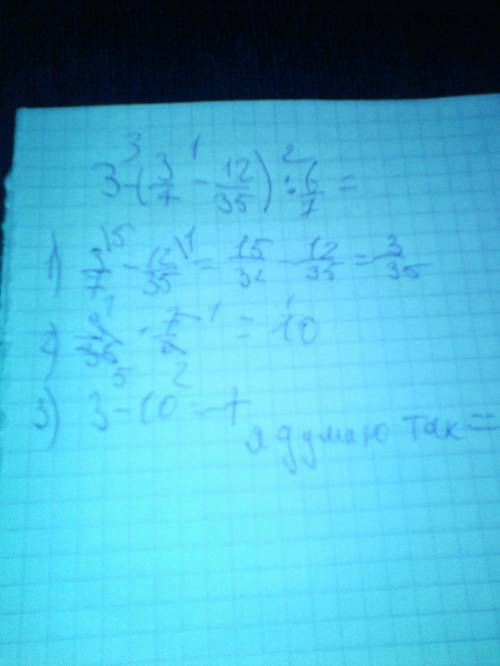 3-(3/7 - 12/35) : 6/7 =
1) 3/7 - 12/35 = 15/35 - 12/35 = 3/35
2) 3/35 · 7/6 = 10
3) 3 - 10 = -7
я думаю так =